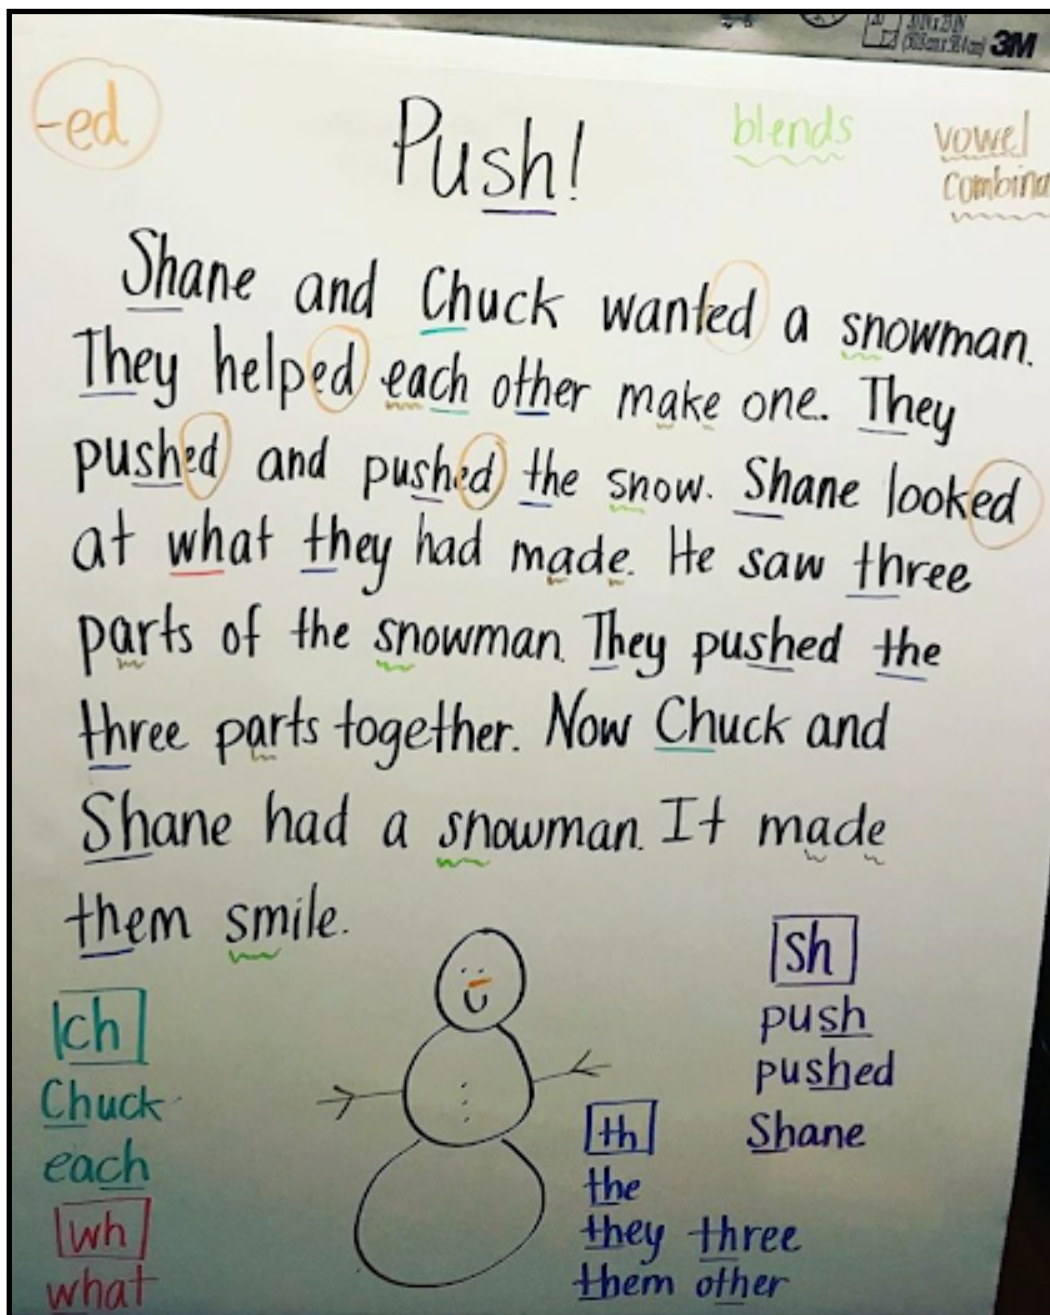 3M
-ed
Push!
blends
vowel
combina
Shane and Chuck wanted a snowman.
They helped each other make one. They
pushed and pushed the snow. Shane looked
at what they had made. He saw three
parts of the snowman. They pushed the
three parts together. Now Chuck and
Shane had a snowman. It made
them smile.
ch
Chuck
each
wh
what
th
the
they three
them other
sh
push
pushed
Shane